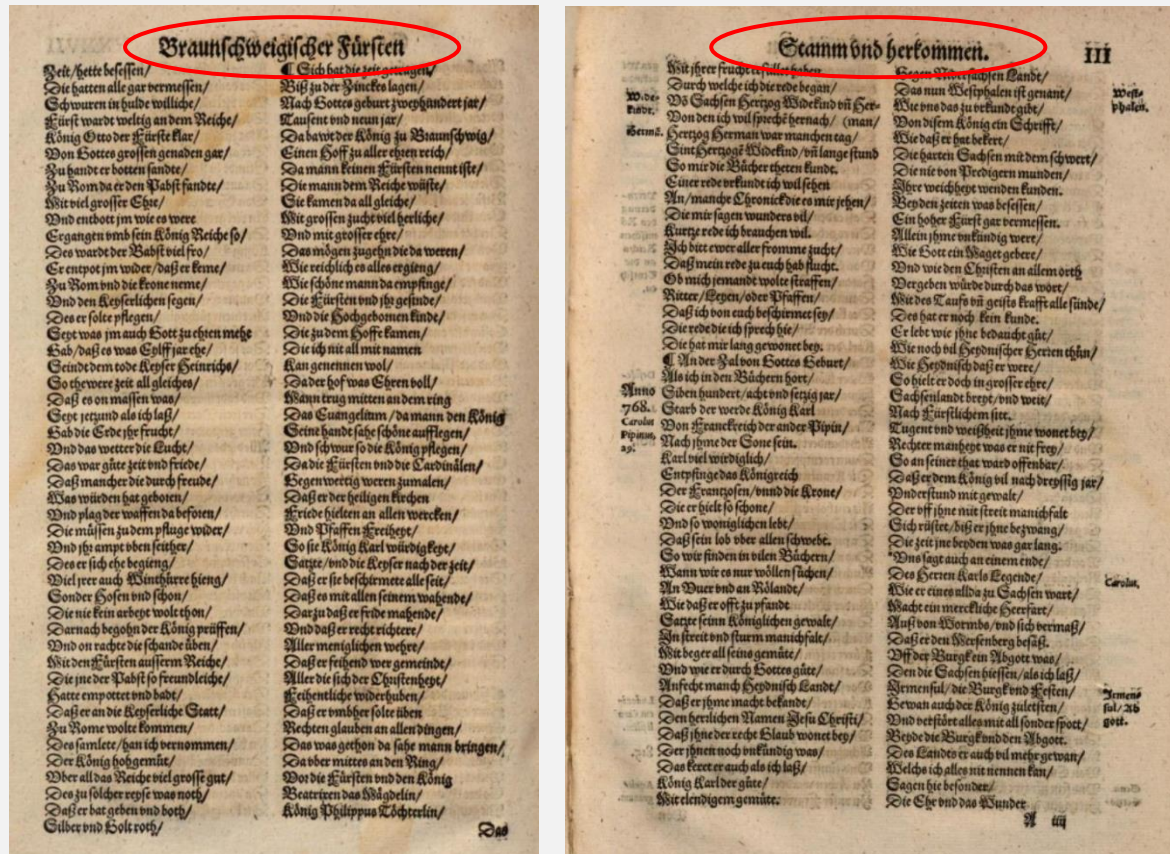 Braunschweigischer Fürsten
Zeit/hette besessen/
Die hatten alle gar vermessen/
Schwuren in hulde williche/
Fürst wardt weltig an dem Reiche/
König Otto der Fürste klar/
Von Gottes grossen genaden gar/
Zu handt er botten sandte/
Zu Rom da er den Pabst sandte/
Mit viel grosser Ehre/
Vnd entbott jm wie es were
Ergangen vmb sein König Reiche so/
Des wardt der Babst viel fro/
Er entpot jm wider/daß er keme/
Zu Rom vnd die krone neme/
Vnd den Keyserlichen segen/
Des er solte pflegen/
Seyt was jm auch Gott zu ehren mehe
Gab/daß es was Eylff jar ehe/
Seindt dem tode Keyser Heinrichs/
So thewere zeit all gleiches/
Daß es on massen was/
Seyt jetzund als ich laß/
Gab die Erde jhr frucht/
Vnd das wetter die Lucht/
Das war güte zeit vnd friede/
Daß mancher die durch freude/
Was würden hat geboten/
Vnd plag der waffen da beforen/
Die müssen zu dem pfluge wider/
Vnd jhr ampt vben seither/
Des er sich ehe begieng/
Viel jrer auch Winthürre hieng/
Sonder Hosen vnd schon/
Die nie kein arbeyt wolt thon/
Darnach begohn der König prüffen/
Vnd on rachte die schande üben/
Mit den Fürsten ausserm Reiche/
Die jne der Pabst so freundleiche/
Hatte empottet vnd badt/
Daß er an die Keyserliche Statt/
Zu Rome wolte kommen/
Des samlete/han ich vernommen/
Der König hohgemüt/
Vber all das Reiche viel grosse gut/
Des zu solcher reyse was noth/
Daß er bat geben vnd both/
Silber vnd Golt roth/
¶ Sich hat die zeit getragen/
Biß zu der Zinckes lagen/
Nach Gottes geburt zweyhundert jar/
Tausent vnd neun jar/
Da bawet der König zu Braunschwig/
Einen Hoff zu aller ehren reich/
Da mann keinen Fürsten nennt iste/
Die mann dem Reiche wüste/
Sie kamen da all gleiche/
Mit grossen zucht viel herliche/
Vnd mit grosser ehre/
Das mögen zugehn die da weren/
Wie reichlich es alles ergieng/
Wie schöne mann da empfinge/
Die Fürsten vnd jhr gesinde/
Vnd die Hochgebornen kinde/
Die zu dem Hoffe kamen/
Die ich nit all mit namen
Kan genennen wol/
Da der hof was Ehren voll/
Wann trug mitten an dem ring
Das Euangelium/da mann den König
Seine handt sahe schöne aufflegen/
Vnd schwur so die König pflegen/
Da die Fürsten vnd die Cardinälen/
Gegen wertig weren zumalen/
Daß er der heiligen kirchen
Friede hielten an allen wercken/
Vnd Pfaffen Freiheyt/
So sie König Karl würdigkeyt/
Satzte/vnd die Keyser nach der zeit/
Daß er sie beschirmete alle seit/
Daß es mit allen seinem wahende/
Darzu daß er fride mahende/
Vnd daß er recht richtere/
Aller meniglichen wehre/
Daß er feihend wer gemeindt/
Aller die sich der Christenheyt/
Feihentliche widerhuben/
Daß er vmbher solte üben
Rechten glauben an allen dingen/
Das was gethon da sahe mann bringen/
Da vber mittes an den Ring/
Vor die Fürsten vnd den König
Beatrixen das Mägdelin/
König Philippus Töchterlin/
Das
Stamm vnd herkommen.
III
Mit jhrer frucht erfüllet haben
Durch welche ich die rede began
Võ Sachsen Hertzog Widekind vñ Her-
Von den ich wil spreche hernach/ (man/
Hertzog Herman war manchen tag/
Sint Hertzogē Widekind/vñ lange stund
So mir die Bücher theten kunde.
Einer rede vrkunde ich wil sehen
An/manche Chronick die es mir jehen/
Die mir sagen wunders vil/
Kurtze rede ich brauchen wil.
Ich bitt ewer aller fromme zucht/
Daß mein rede zu euch hab flucht.
Ob mich jemandt wolte straffen/
Ritter/Leyen/oder Pfaffen/
Daß ich von euch beschirmet sey/
Die rede die ich sprech hie/
Die hat mir lang gewonet bey.
¶ An der Zal von Gottes Geburt/
Als ich in den Büchern hort/
Siben hundert/acht vnd setzig jar/
Starb der werde König Karl
Von Franckreich der ander Pipin/
Nach jhme der Sone sein.
Karl viel wirdiglich/
Entpfinge das Königreich
Der Frantzosen/vnnd die Krone/
Die er hielt so schone/
Vnd so woniglichen lebt/
Daß sein lob vber allen schwebt.
So wir finden in vilen Büchern/
Wann wir es nur wöllen süchen/
An Buer vnd an Rölandt/
Wie daß er offt zu pfande
Satzte seinn Königlichen gewalt/
In streit vnd sturm manichfalt/
Mit beger all seins gemüte/
Vnd wie er durch Gottes güte/
Anfecht manch Heydnisch Landt/
Daß er jhme macht bekandt/
Den herrlichen Namen Jesu Christi/
Daß jhne der recht Glaub wonet bey/
Der jhnen noch vnkündig was/
Das keret er auch als ich laß/
König Karl der güte/
Mit elendigem gemüte.
Wide-
kindt.
Hermã.
Anno
768.
Carolus
Pipinus,
Gegen Nidersachsen Landt/
Das nun Westphalen ist genant/
Wie vns das zu vrkundt gibt/
Von disem König ein Schrifft/
Wie daß er hat bekert/
Die harten Sachsen mit dem schwert/
Die nie von Predigern munden/
Ihre weichheyt wenden kunden.
Bey den zeiten was besessen/
Ein hoher Fürst gar vermessen.
Allein jhme vnkündig were/
Wie Gott ein Maget gebere/
Vnd wie den Christen an allem orth
Vergeben würde durch das wort/
Mit des Taufs vñ geists krafft alle sünde/
Des hat er noch kein kunde.
Er lebt wie jhne bedaucht güt/
Wie noch vil Heydnischer Herren thün/
Wie Heydnisch daß er were/
So hielt er doch in grosser ehre/
Sachsenlandt breyt/vnd weit/
Nach Fürstlichem sitt.
Tugent vnd weißheit jhme wonet bey/
Rechter manheyt was er nit frey/
So an seiner that ward offenbar/
Daß er dem König vil nach dreyssig jar/
Vnderstund mit gewalt/
Der vff jhne mit streit manichfalt
Sich rüstet/biß er jhne bezwang/
Die zeit jne beyden was gar lang.
Vns sagt auch an einem ende/
Des Herren Karls Legende/
Wie er eines allda zu Sachsen wart/
Macht ein merckliche Heerfart/
Auß von Wormbs/vnd sich vermaß/
Daß er den Mersenberg besäß.
Vff der Burgk ein Abgott was/
Den die Sachsen hiessen/als ich laß/
Irmensul/die Burgk vnd Festen/
Gewan auch der König zuletsten/
Vnd verstört alles mit all sonder spott/
Beyde die Burgk vnd den Abgott.
Des Landts er auch vil mehr gewan/
Welchs ich alles nit nennen kan/
Sagen hie besonder/
Die Ehr vnd das Wunder
West-
phalen.
Carolus,
Irmens
sul/Ab
gott.
A iiij